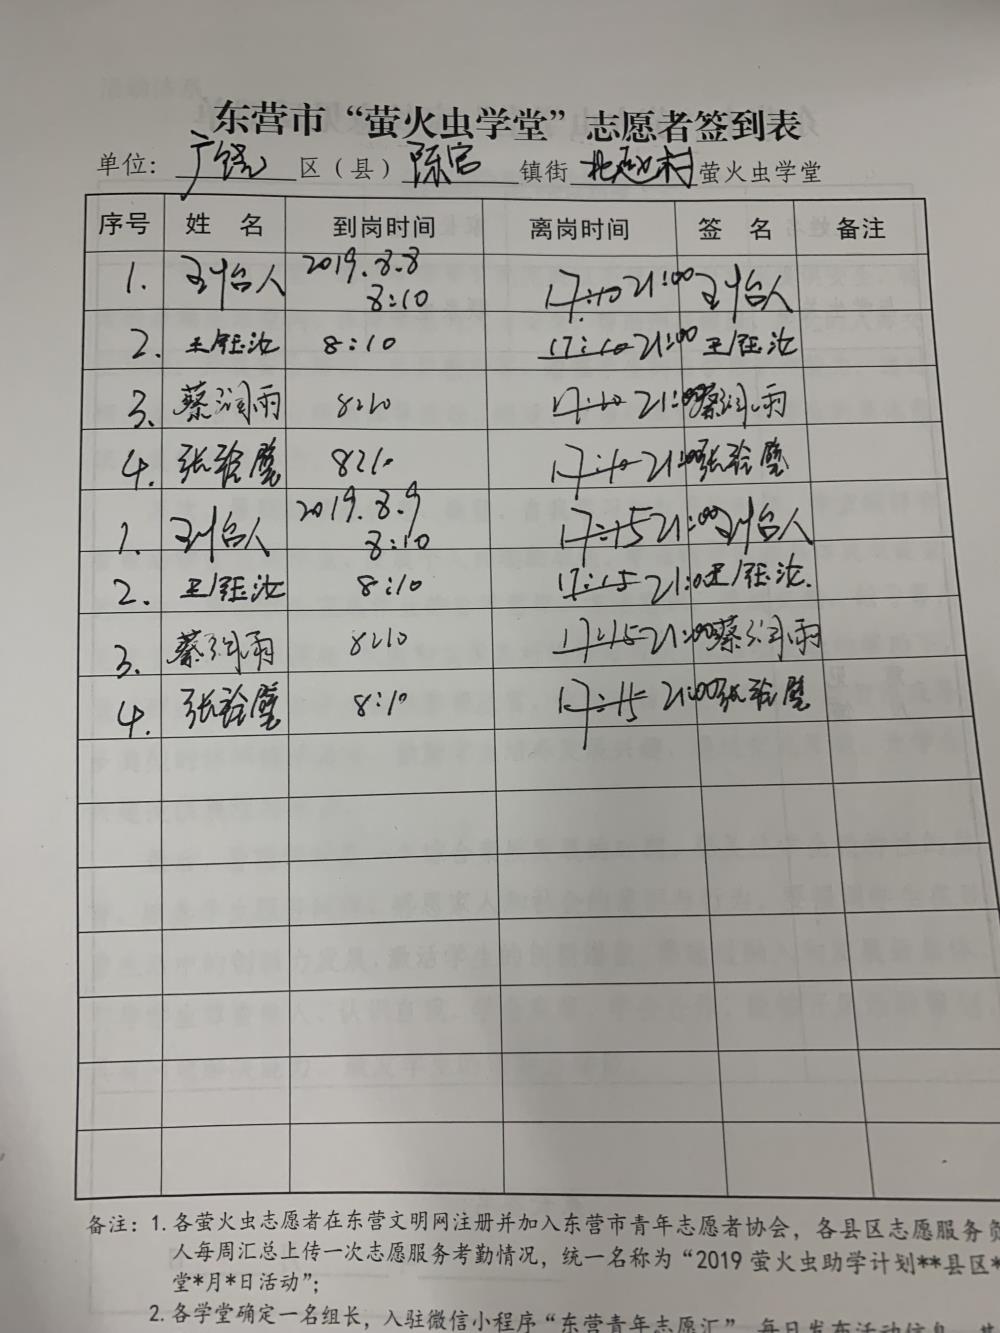 东营市“萤火虫学堂”志愿者签到表
单位：广饶区（县）陈官镇街北赵村萤火虫学堂
序号 姓 名 到岗时间 离岗时间 签 名 备注
1. 刘台人 2019.8.8 8:10 17:10 21:00 刘台人
2. 王钰汝 8:10 17:10 21:00 王钰汝
3. 蔡润雨 8:10 17:10 21:00 蔡润雨
4. 张 8:10 17:10 21:00 张
1. 刘台人 2019.8.9 8:10 17:15 21:00 刘台人
2. 王钰汝 8:10 17:15 21:0 王钰汝.
3. 蔡润雨 8:10 17:15 21:00 蔡润雨
4. 张 8:10 17:15 21:00 张
备注：1. 各萤火虫志愿者在东营文明网注册并加入东营市青年志愿者协会，各县区志愿服务负
人每周汇总上传一次志愿服务考勤情况，统一名称为“2019 萤火虫助学计划**县区*
堂*月*日活动”；
2. 各学堂确定一名组长，入驻微信小程序“东营青年志愿汇”，每日发布活动信息，